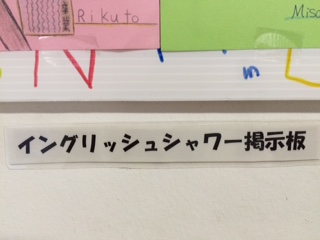 Rikuto
イングリッシュシャワー掲示板